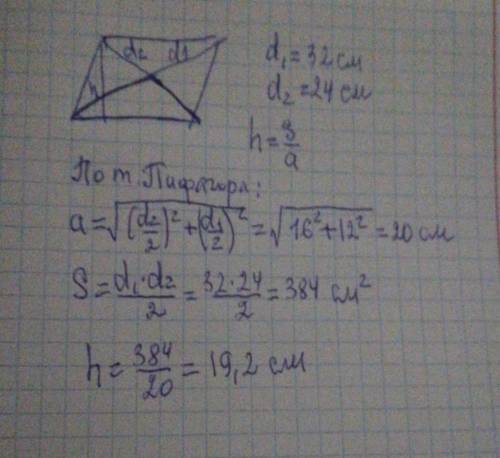 d₂ d₁ d₁ = 32 см
d₂ = 24 см
h h = S/a
По т. Пифагора:
a = √((d₂/2)² + (d₁/2)²) = √(16² + 12²) = 20 см
S = d₁·d₂/2 = 32·24/2 = 384 см²
h = 384/20 = 19,2 см